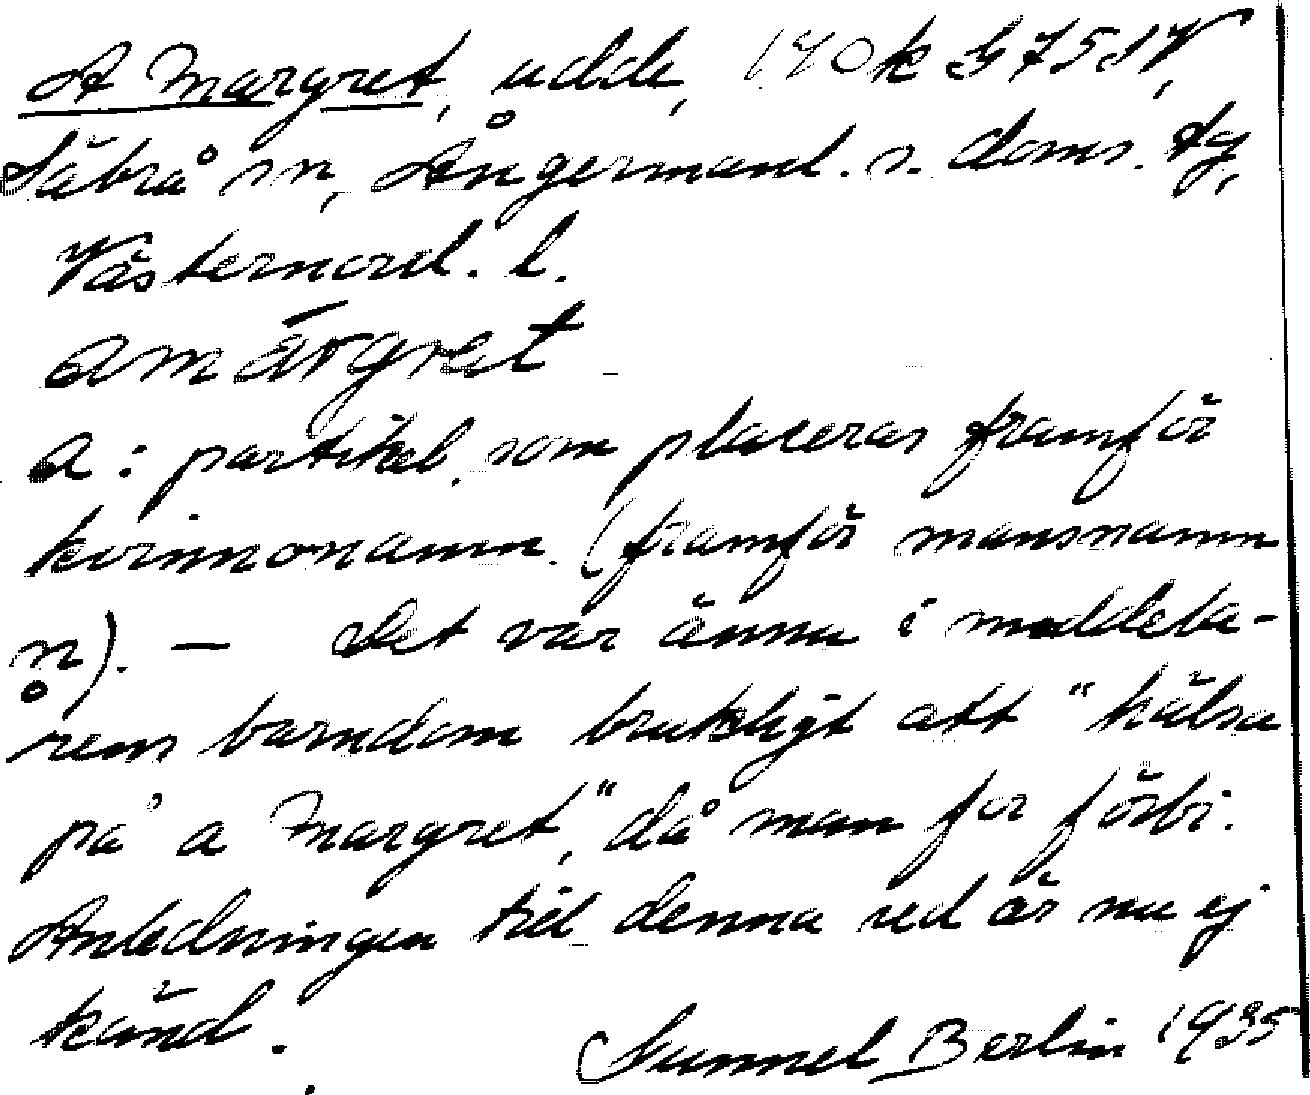 A Margret, udde, 170 k G 7517,
Säbrå sn, Ångermanl. s. doms. tg,
Västernorrl. l.
amárgret
a: partikel, som placeras framför
kvinnonamn. (framför mansnamn
n). — Det var ännu i meddela-
rens barndom brukligt att "hälsa
på a Margret," då man for förbi.
Anledningen till denna sed är nu ej
känd.
Gunnel Berlin 1935